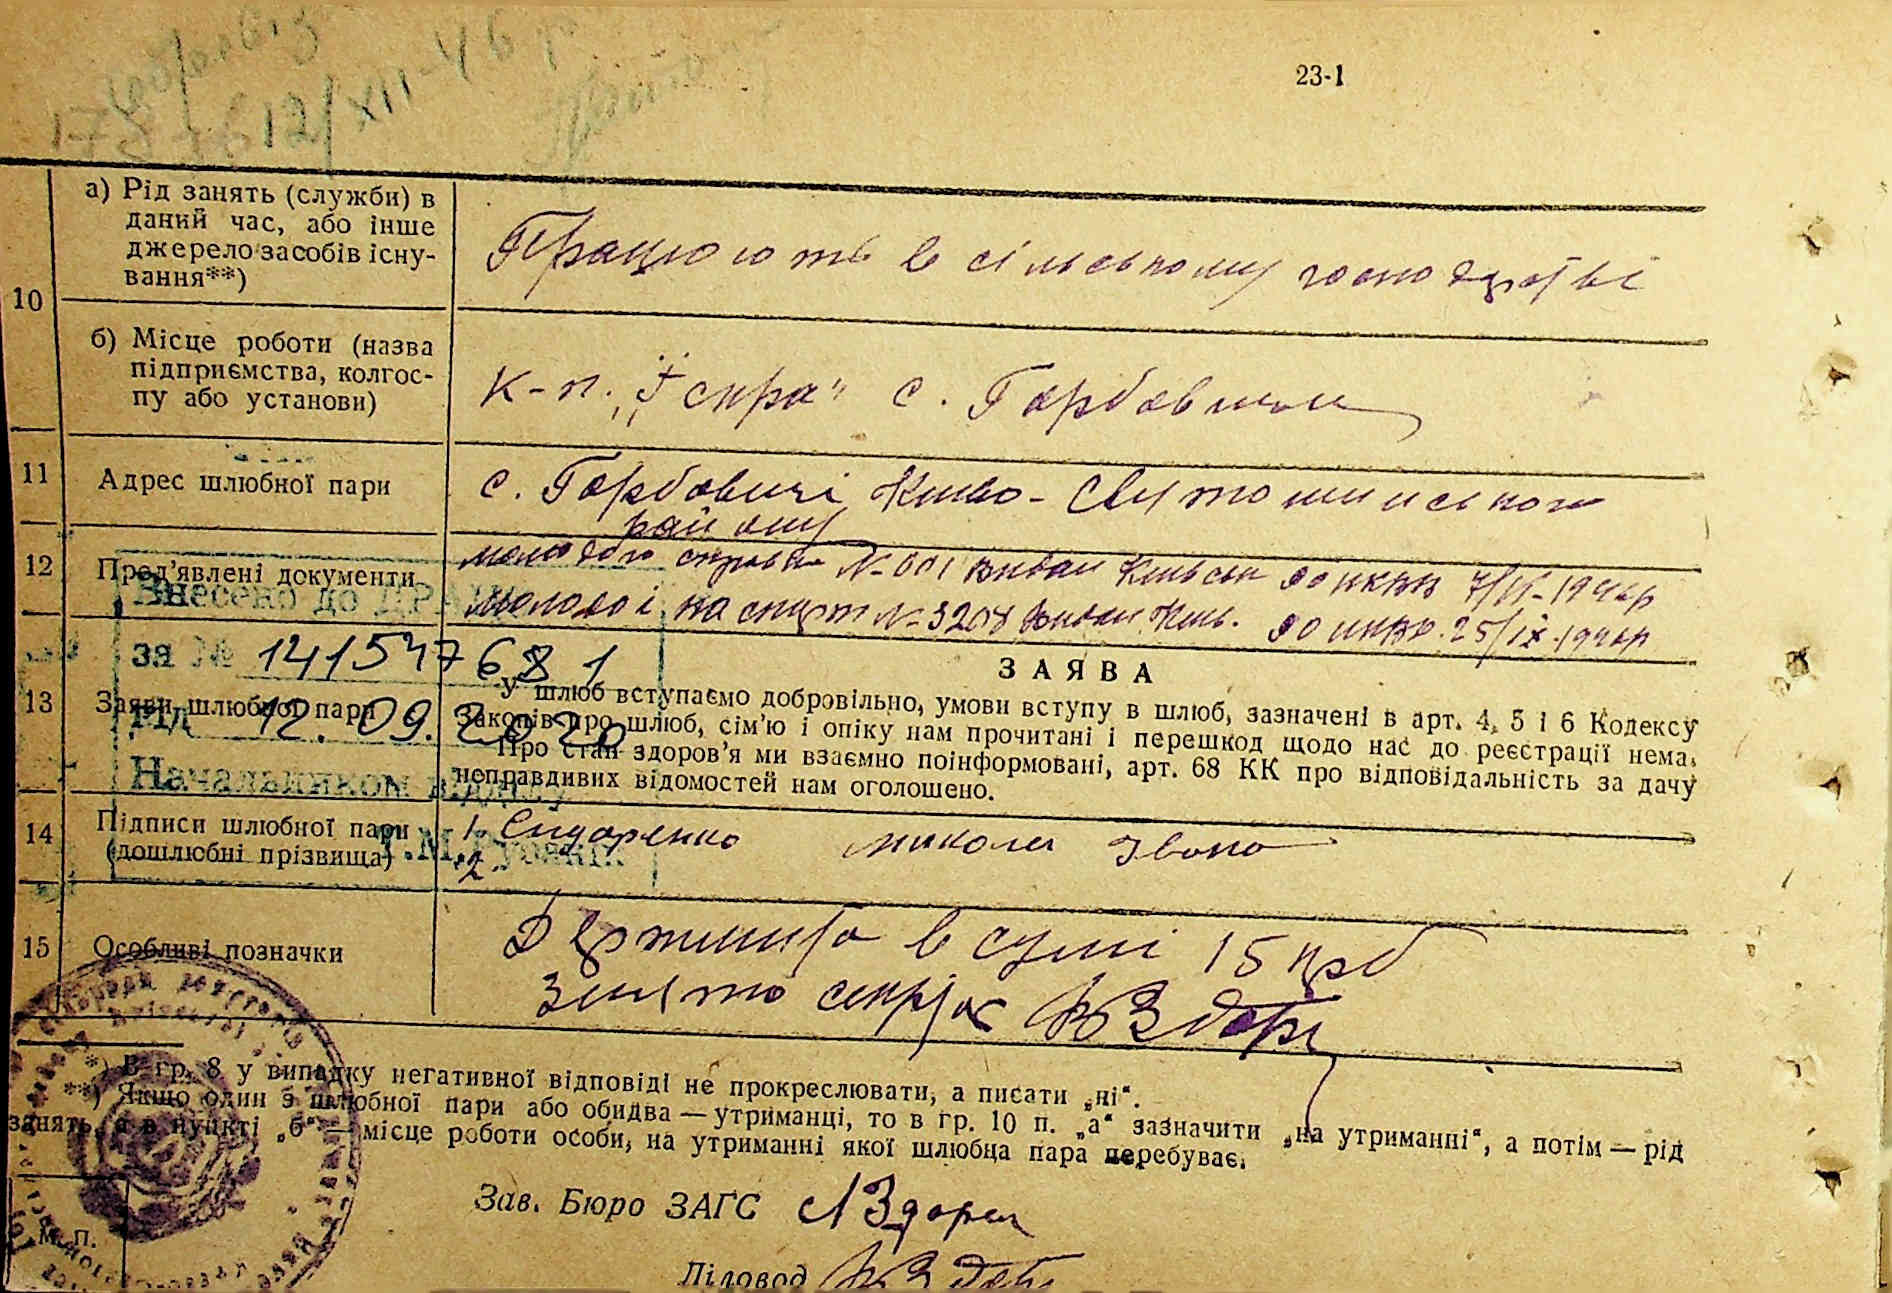 23-1
10
а) Рід занять (служби) в
даний час, або інше
джерело засобів існу-
вання**)
Працюють в сільському господрстві
б) Місце роботи (назва
підприємства, колгос-
пу або установи)
к-п. „Іскра" с. Горбович
11
Адрес шлюбної пари
с. Горбовичі Києво-Святошинського
району
12
Пред'явлені документи
молодого справка №601 видан Київськ РО НКВД
молодої паспорт № 3208 видан Київ. РО НКВД. 25/ІХ-
Внесено до ДРА
за № 1415476 8 1
від 12. 09. 2020
Начальником відділу
13
Заяви шлюбної пари
ЗАЯВА
У шлюб вступаємо добровільно, умови вступу в шлюб, зазначені в арт. 4, 5 і 6 Кодексу
Законів про шлюб, сім'ю і опіку нам прочитані і перешкод щодо нас до реєстрації нема.
Про стан здоров'я ми взаємно поінформовані, арт. 68 КК про відповідальність за дачу
неправдивих відомостей нам оголошено.
14
Підписи шлюбної пари
(дошлюбні прізвища)
1. Сидоренко Микола Івано
2.
15
Особливі позначки
Держмита в сумі 15 крб
Знято секр
*) В гр. 8 у випадку негативної відповіді не прокреслювати, а писати „ні".
**) Якщо один з шлюбної пари або обидва — утриманці, то в гр. 10 п. „а" зазначити „на утриманні", а потім — рід
занять, а в пункті „б" — місце роботи особи, на утриманні якої шлюбна пара перебуває.
Зав. Бюро ЗАГС
М. П.
Діловод